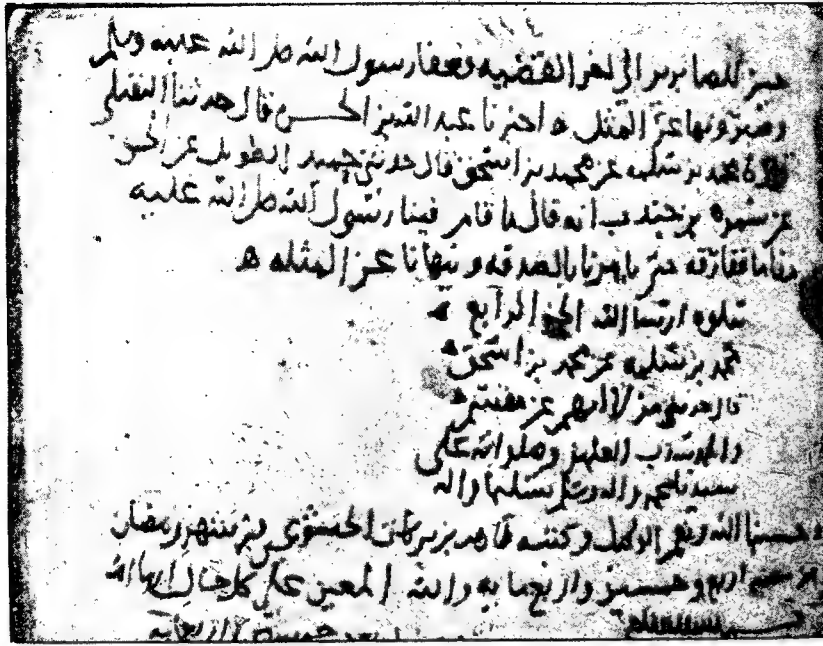 الى اخر القضيه فعفا رسول الله صلى الله عليه وسلم
وصبر ونها عن المثل ه اخبرنا عبد الله بن الحسن قال حدثنا النفيلي
محمد بن سلمه عن محمد بن اسحق قال حدثني حميد الطويل عن الحسن
عن سمره بن جندب انه قال ما قام فينا رسول الله صلى الله عليه
مقاما ففارقه حتى يامرنا بالصدقه وينهانا عن المثله ه
يتلوه ان شا الله الجز الرابع
محمد بن سلمه عن محمد بن اسحق
قال حدثني من لا اتهم عن مقسم
والحمد لله رب العلمين وصلواته على
سيدنا محمد واله وسلم تسليما
وحسبنا الله ونعم الوكيل وكتبه طاهر بن بركات الخشوعي في شهر رمضان
من سنه اربع وخمسين واربع مايه والله المعين على كل حال ان شا الله